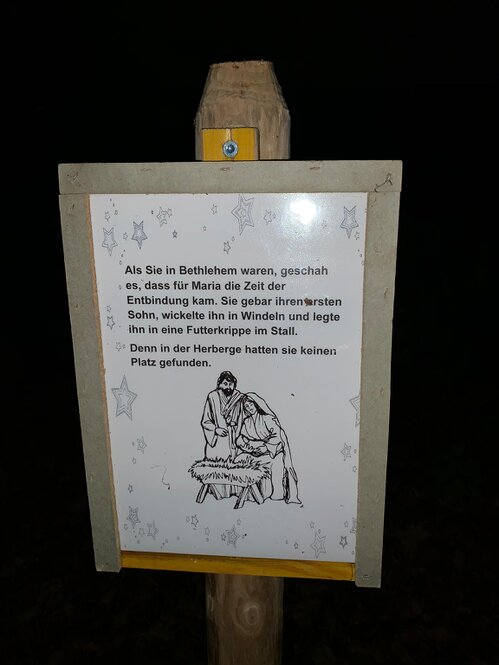 Als Sie in Bethlehem waren, geschah
es, dass für Maria die Zeit der
Entbindung kam. Sie gebar ihren ersten
Sohn, wickelte ihn in Windeln und legte
ihn in eine Futterkrippe im Stall.
Denn in der Herberge hatten sie keinen
Platz gefunden.